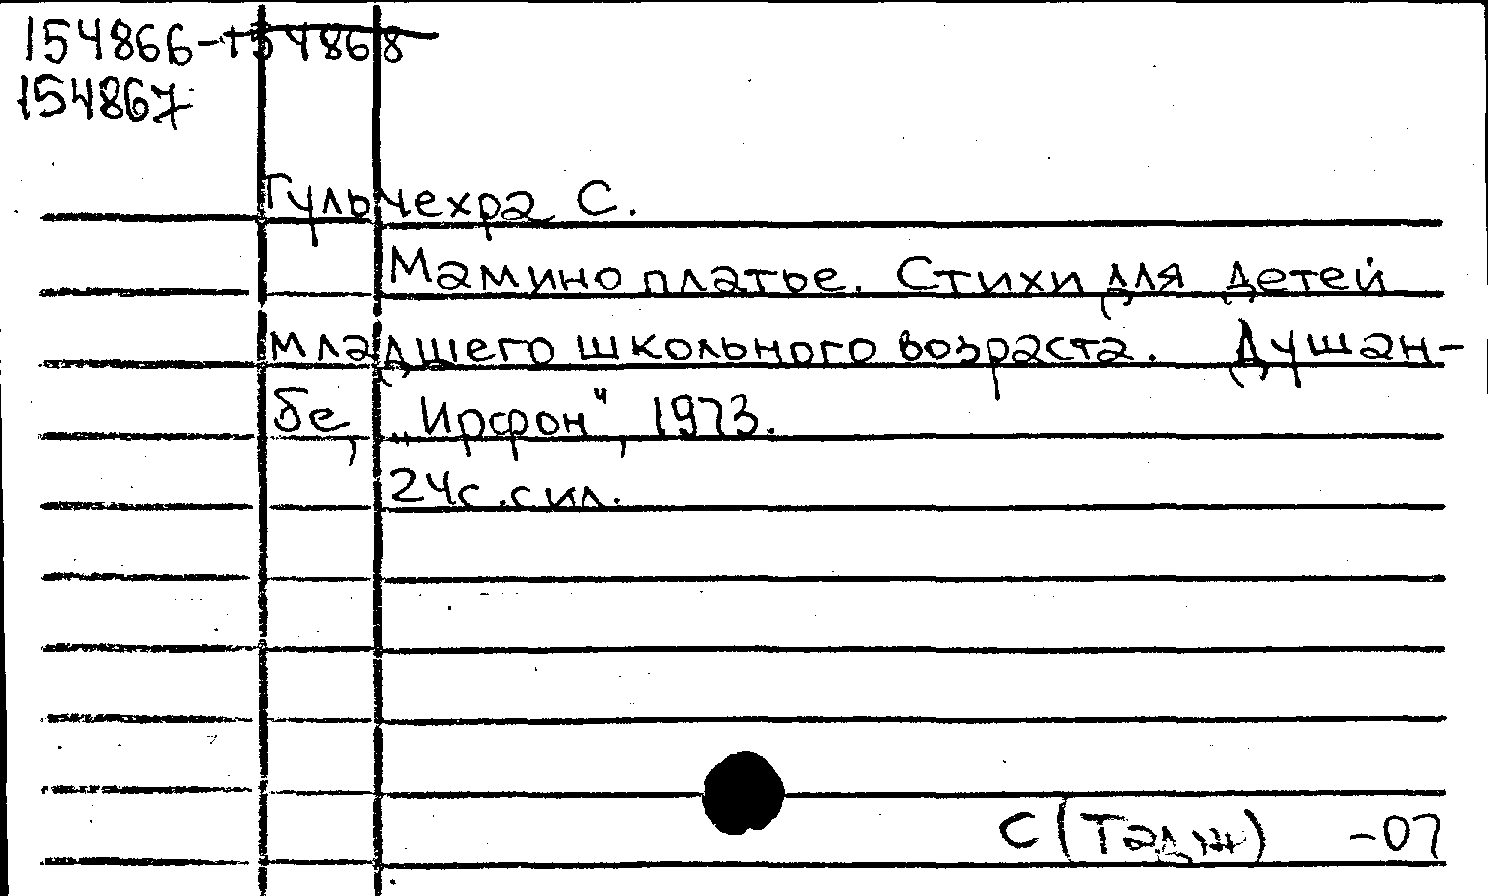 154866-154868
154867
Гульчехра С.
Мамино платье. Стихи для детей
младшего школьного возраста. Душан-
бе, „Ирфон", 1973.
24с. с ил.
С (Тадж) -07